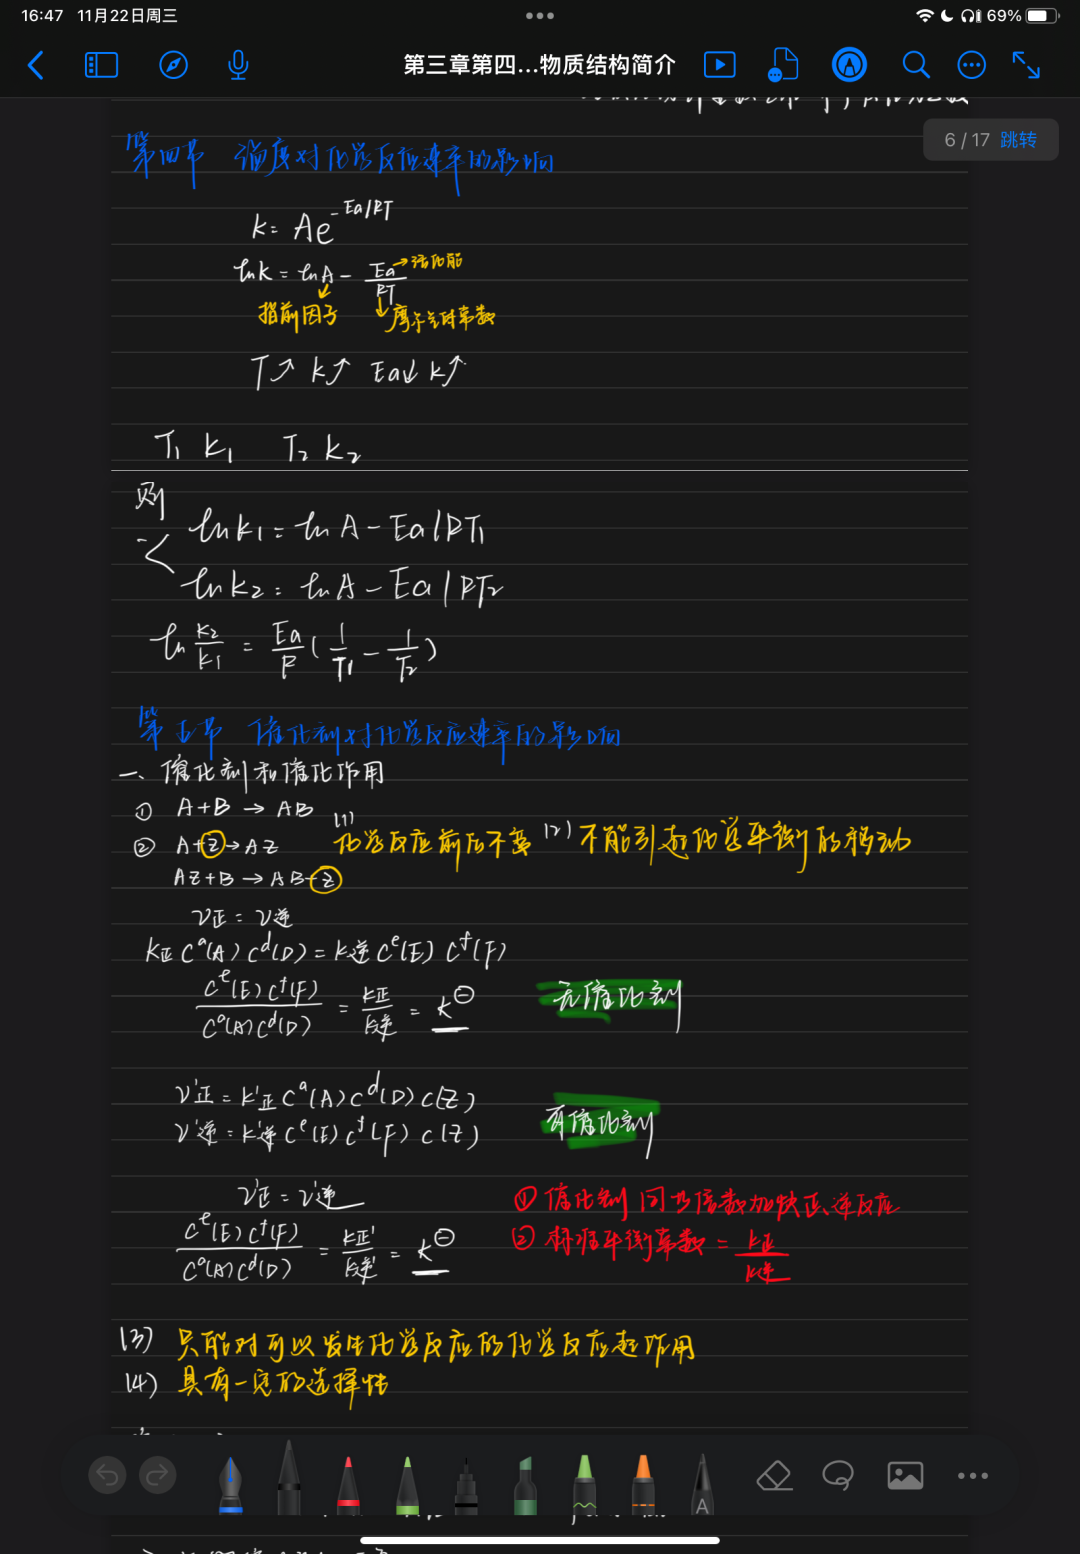 16:47 11月22日周三 69%
第三章第四...物质结构简介
6 / 17 跳转
第四节 温度对化学反应速率的影响
k = Ae^(-Ea/RT)
lnk = lnA - Ea/RT →活化能
指前因子 摩尔气体常数
T↗ k↗ Ea↓ k↗
T₁ k₁ T₂ k₂
则
lnk₁ = lnA - Ea/RT₁
lnk₂ = lnA - Ea/RT₂
ln k₂/k₁ = Ea/R (1/T₁ - 1/T₂)
第五节 催化剂对化学反应速率的影响
一、催化剂和催化作用
① A+B → AB
② A+Z → AZ (1) 化学反应前后不变 (2) 不能引起化学平衡的移动
AZ+B → AB+Z
ν正 = ν逆
k正 Cᵃ(A) Cᵈ(D) = k逆 Cᵉ(E) Cᶠ(F)
Cᵉ(E) Cᶠ(F) / Cᵃ(A) Cᵈ(D) = k正/k逆 = K⊖ 无催化剂
ν'正 = k'正 Cᵃ(A) Cᵈ(D) C(Z)
ν'逆 = k'逆 Cᵉ(E) Cᶠ(F) C(Z) 有催化剂
ν'正 = ν'逆 ① 催化剂同等倍数加快正、逆反应
Cᵉ(E) Cᶠ(F) / Cᵃ(A) Cᵈ(D) = k正'/k逆' = K⊖ ② 标准平衡常数 = k正/k逆
(3) 只能对可以发生化学反应的化学反应起作用
(4) 具有一定的选择性
A